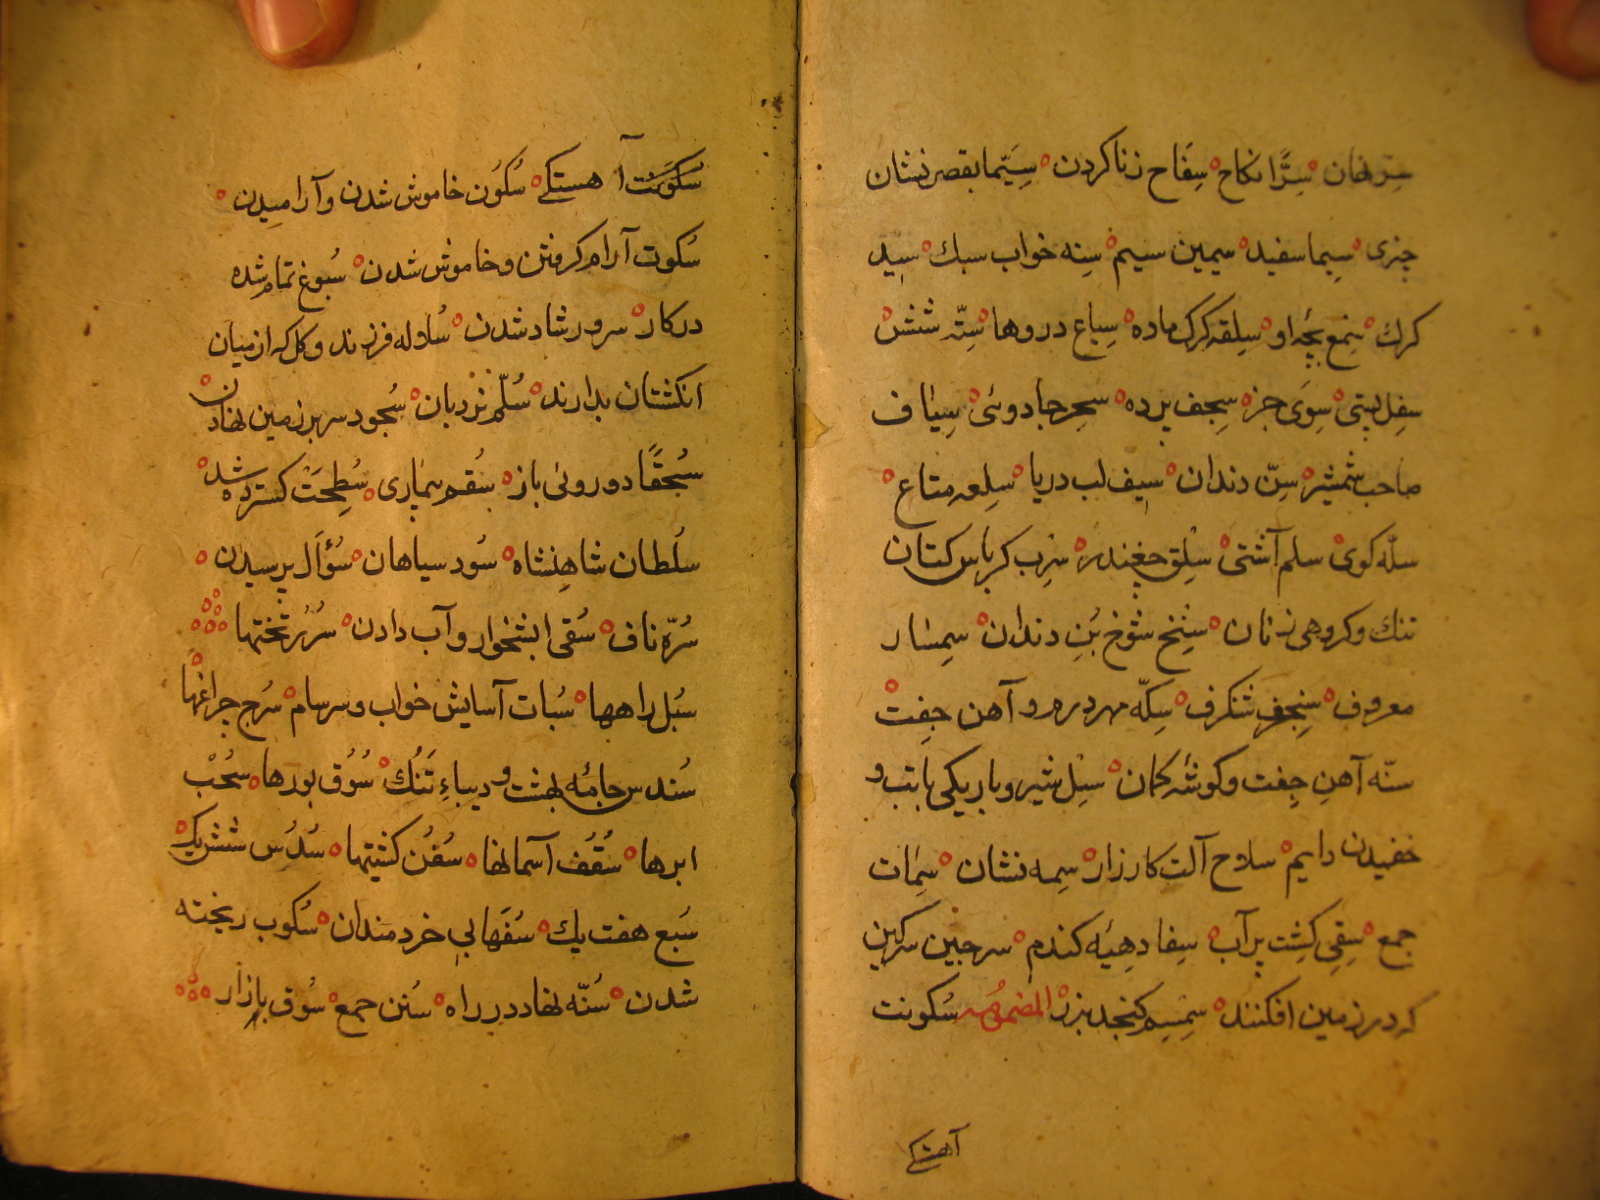 سِرّ نهان ° سِرًّا نکاح ° سِفَاح زنا کردن ° سِیَّما بقصر نشان
چیزی ° سیما سفید ° سیمین سیم ° سِنه خواب سبك ° سید
کرك ° سِمع بچّهٔ او ° سِلقه کرك ماده ° سِباع دروها ° سِتّه شش °
سِفل پستی ° سِوَی جز ° سِجف پرده ° سِحر جادوئی ° سیّاف
صاحب شمشیر ° سِنّ دندان ° سیف لب دریا ° سِلعه متاع °
سلّه کوی ° سلم آشتی ° سِلق چغندر ° سِرب کرباس کتان
تنك و کروهی زنان ° سِنخ شوخ بُنِ دندان ° سِمسار
معروف ° سِنجرف شنکرف ° سِکّه مهر درم و آهن جِفت °
سنّه آهنِ جِفت و کوشهٔ کمان ° سیل شیر و باریکی با تب و
خفیدن دایم ° سلاح آلت کارزار ° سِمه نشان ° سِمات
جمع ° سِقی کِشت پر آب ° سِفا دهیهٔ کندم ° سرجین سرکین
که در زمین افکنند ° سِمسِم کنجد بزر ° المضمومه سُکونت
آهستکی
سُکَوْنَت آهستکے ° سُکُوْن خاموش شدن و آرامیدن °
سُکوت آرام کرفتن و خاموش شدن ° سُبوغ تمام شده
در کار ° سرور شاد شدن ° سُلوله فرزند و کل که از میان
انکشتان بدارند ° سُلّم نردبان ° سُجود سر بر زمین نهادن °
سُحْقًا دوروئی باز ° سُقم بیماری ° سُطِحَتْ کسترده شد °
سُلطان شاهِنشاه ° سُود سیاهان ° سُؤَال پرسیدن °
سُرّه ناف ° سُقی ابشخوار و آب دادن ° سُرُر تختها
سُبُل راهها ° سُبات آسایش خواب و سرسام ° سُرج چراغها °
سُندس جامهٔ بهشت و دیباءِ تَنُك ° سُوُق بوردها ° سُحُبْ
ابرها ° سُقُف آسمانها ° سُفُن کشتیها ° سُدُس شش یك °
سُبع هفت یك ° سُفَها بی خردمندان ° سُکوب ریخته
شدن ° سُنّه نهاد در راه ° سُنن جمع ° سُوق بازار